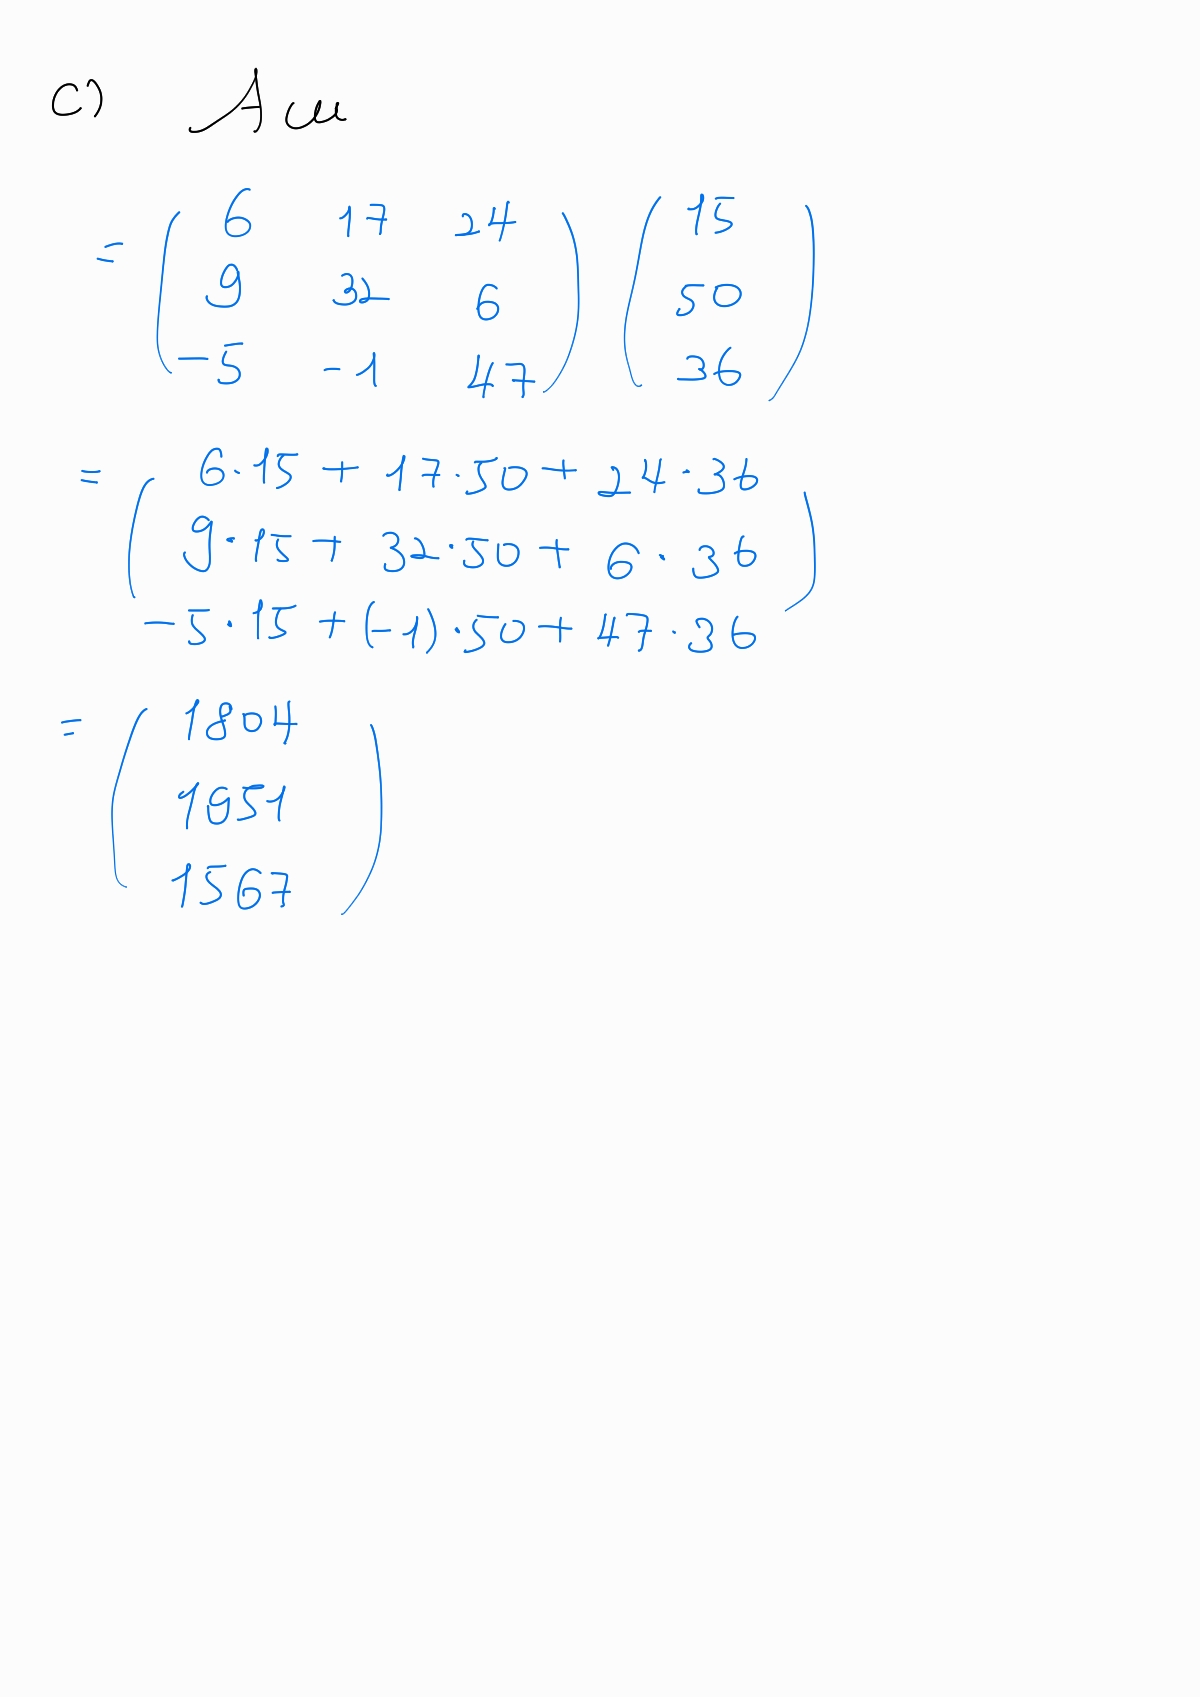 c) Au
= ( 6 17 24 ) ( 15 )
9 32 6 50
-5 -1 47 36
= ( 6·15 + 17·50 + 24·36 )
9·15 + 32·50 + 6·36
-5·15 + (-1)·50 + 47·36
= ( 1804 )
1951
1567